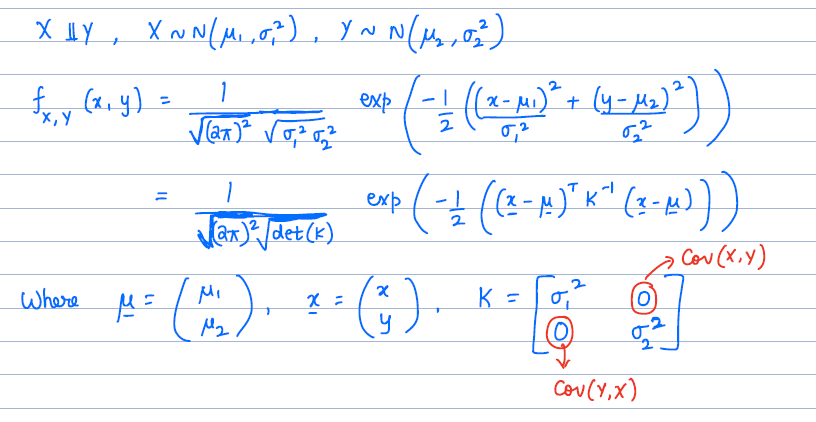 X ⫫ Y , X ~ N(μ₁, σ₁²) , Y ~ N(μ₂, σ₂²)
f_{X,Y} (x, y) = 1 / (√(2π)² √(σ₁² σ₂²)) exp ( -1/2 ( (x-μ₁)²/σ₁² + (y-μ₂)²/σ₂² ) )
= 1 / (√(2π)² √det(K)) exp ( -1/2 ( (x̲ - μ̲)ᵀ K⁻¹ (x̲ - μ̲) ) )
Cov(X,Y)
Where μ̲ = (μ₁ μ₂), x̲ = (x y), K = [σ₁² 0 0 σ₂²]
Cov(Y,X)